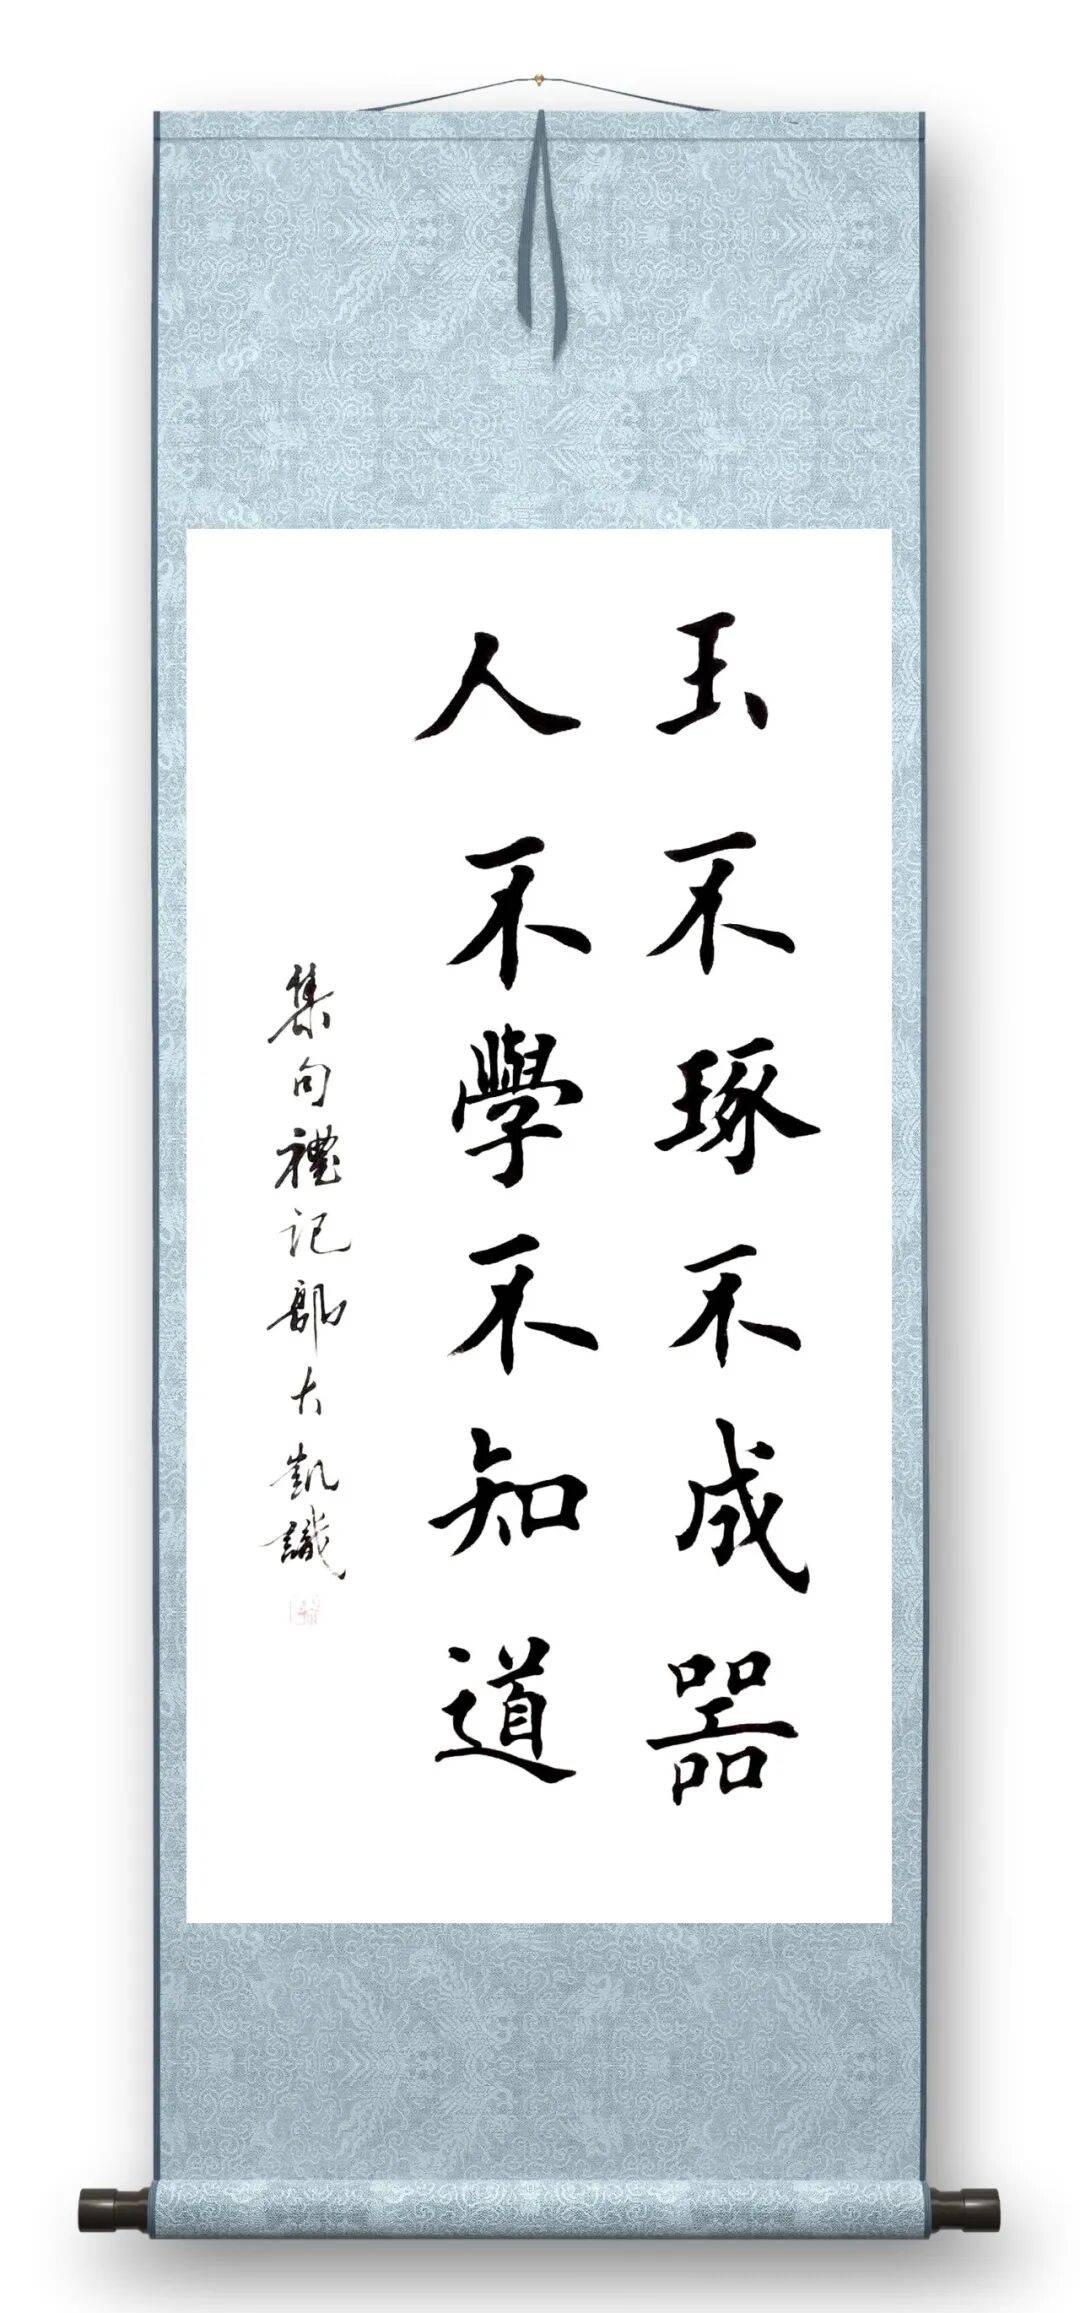 玉不琢不成器
人不學不知道
集句禮記鄔大凱識